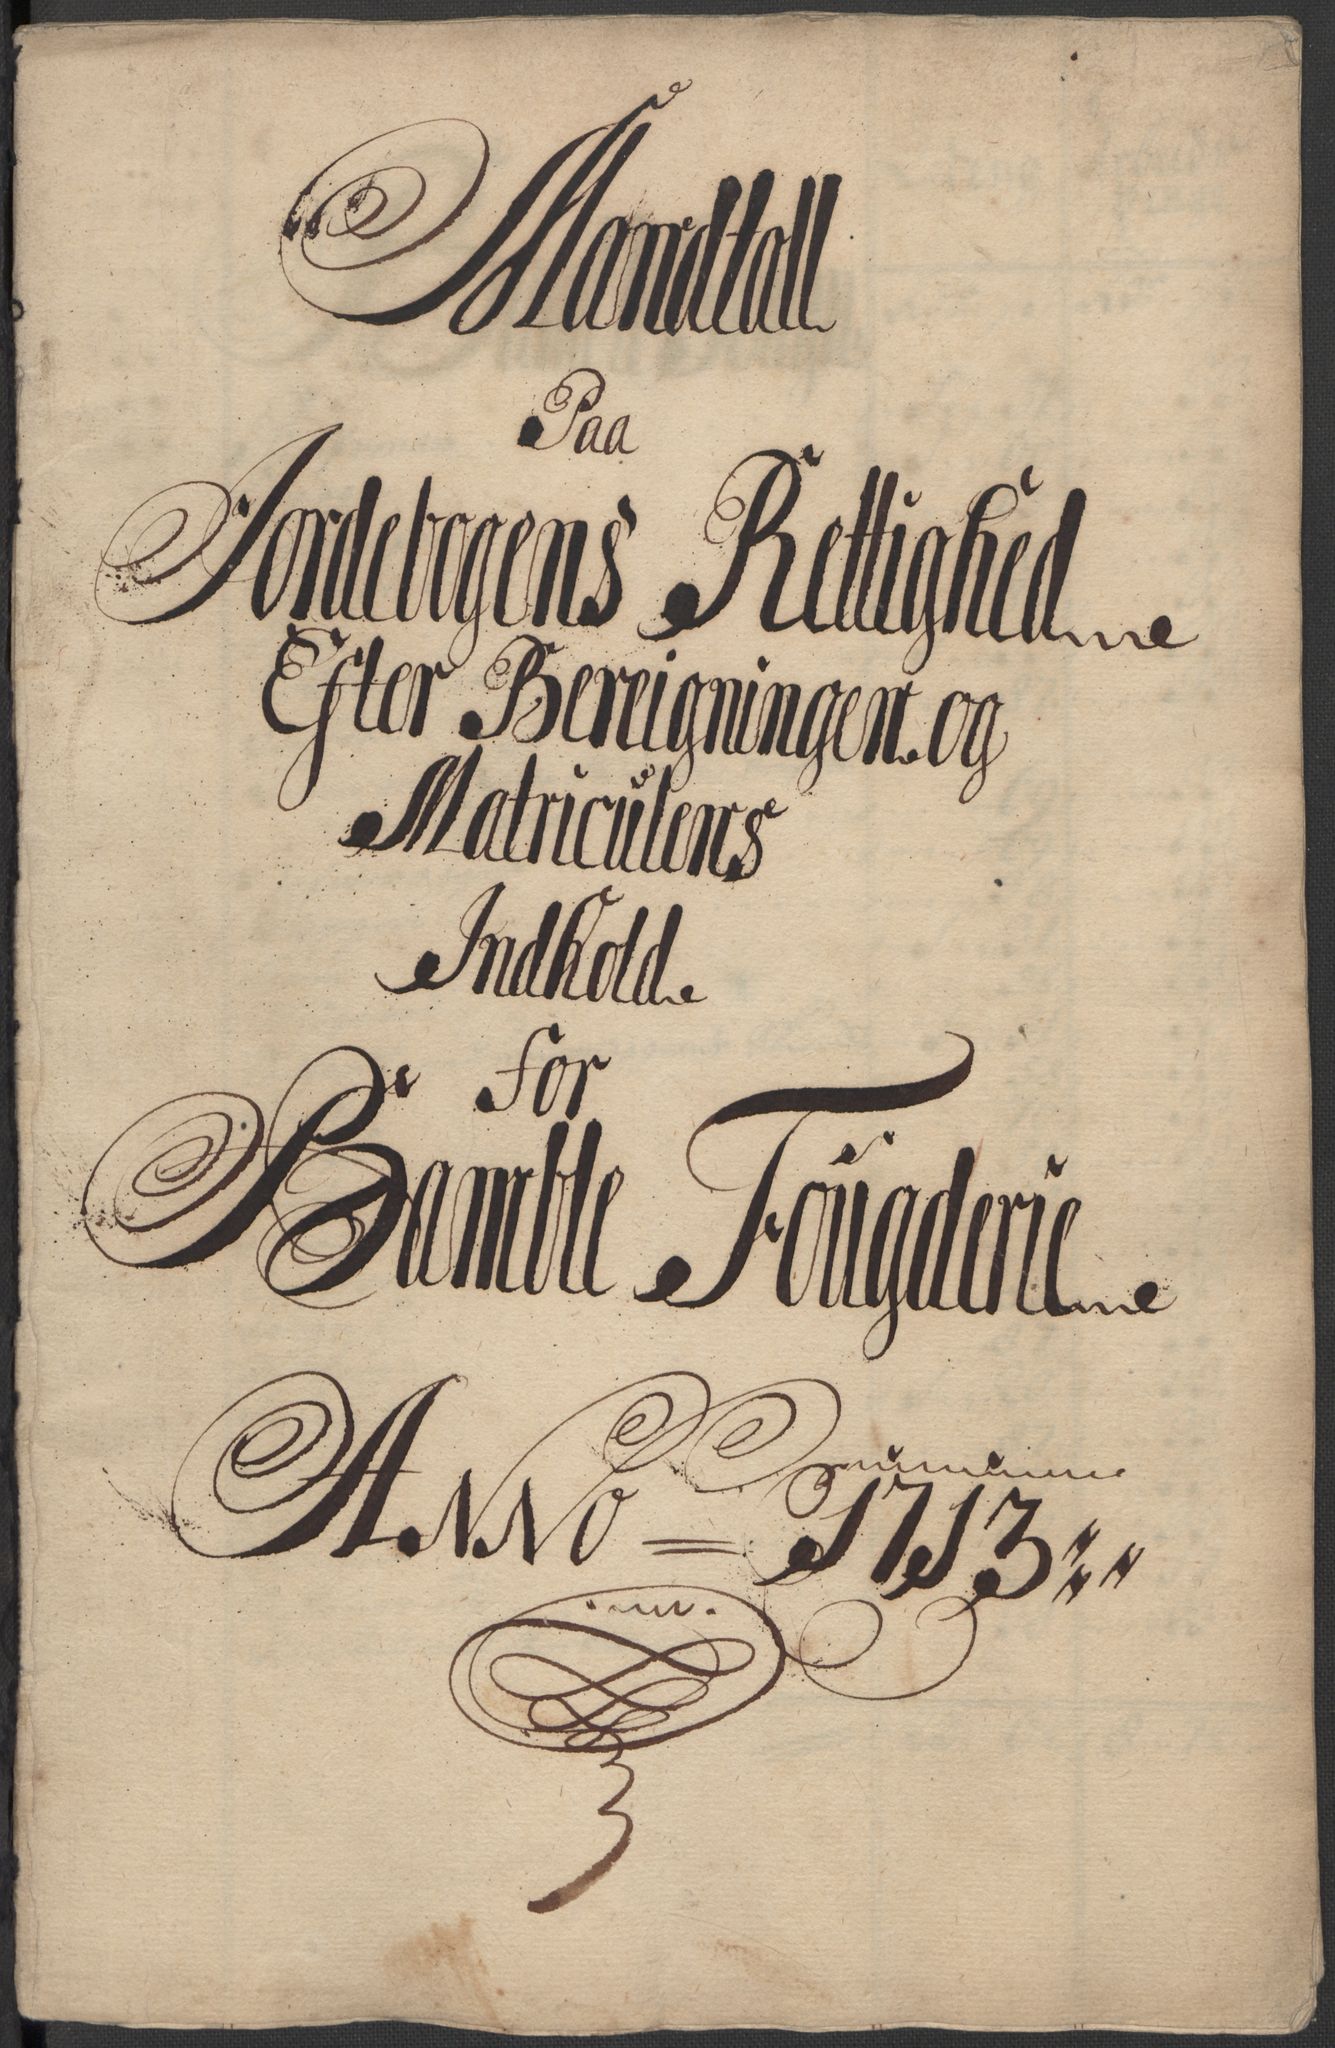 Mandtall
Paa
Jordebogens Rettighed
Efter Bereigningen og
Matriculens
Indhold
for
Bamble Fougderie
Anno = 1713